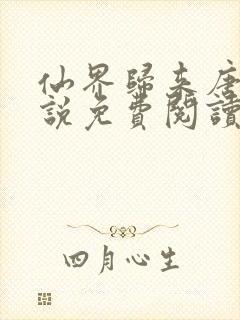 仙界歸来唐
說免費閱讀
四月心生